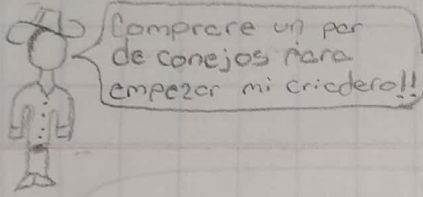 Comprare un par
de conejos para
empezar mi criadero!!